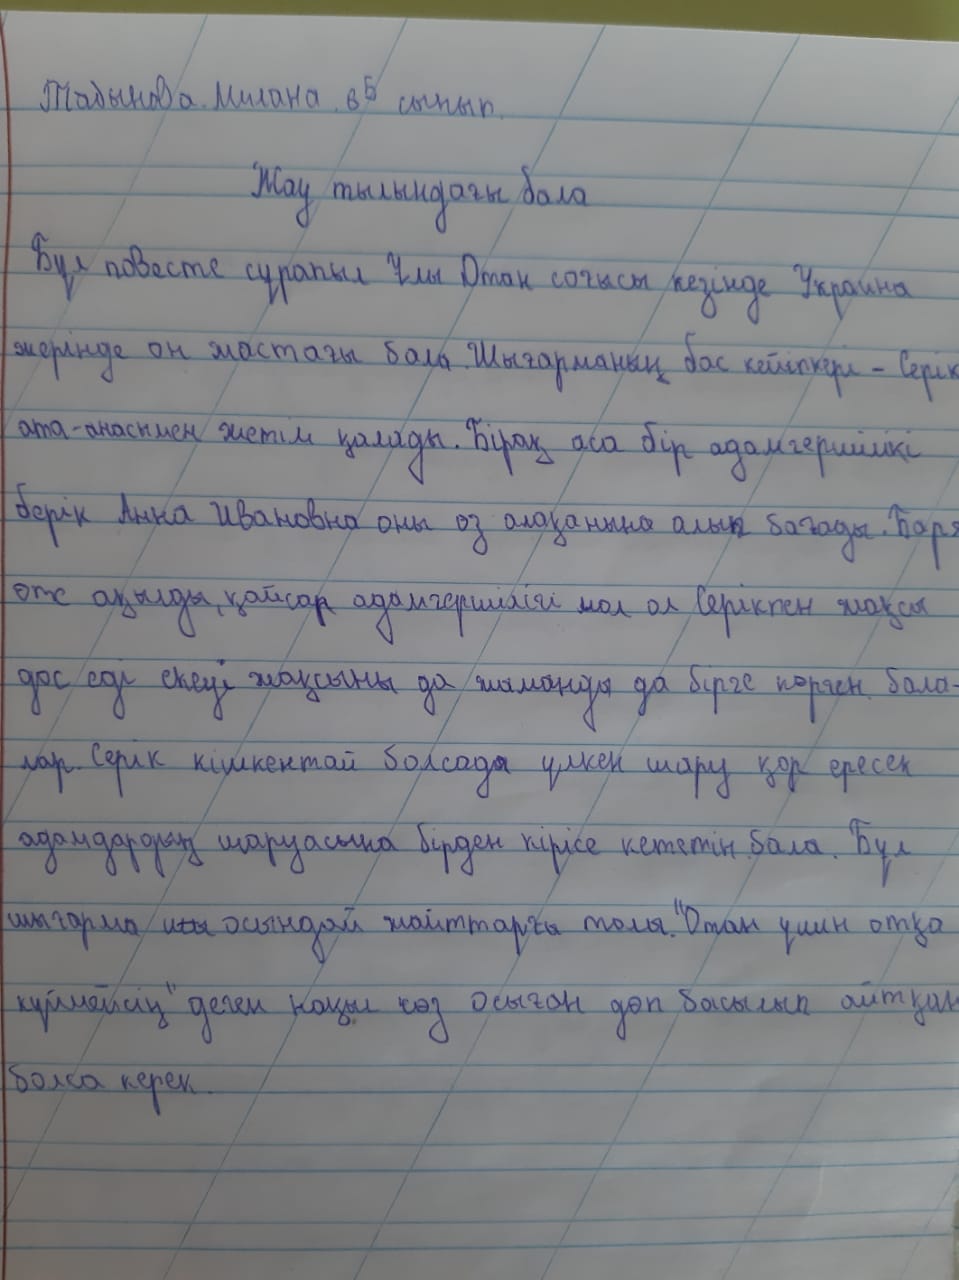 Табынова Милана 6Б сынып.
Жау тылындағы бала
Бұл повесте сұрапыл Ұлы Отан соғысы кезінде Украина
жерінде он жастағы бала. Шығарманың бас кейіпкері – Серік
ата-анасымен жетім қалады. Бірақ аса бір адамгершілікі
берік Анна Ивановна оны өз алақанына алып бағады. Баря
өте ақылды, қайсар адамгершілігі мол ол Серікпен жақсы
дос еді екеуі жақсыны да жаманды да бірге көрген бала-
лар. Серік кішкентай болсада үлкен шару қор ересек
адамдардың шаруасына бірден кірісе кететін бала. Бұл
шығарма осындай жайттарға толы. "Отан үшин отқа
күймейсің" деген нақыл сөз осыған дәп басылып айтқан
болса керек.